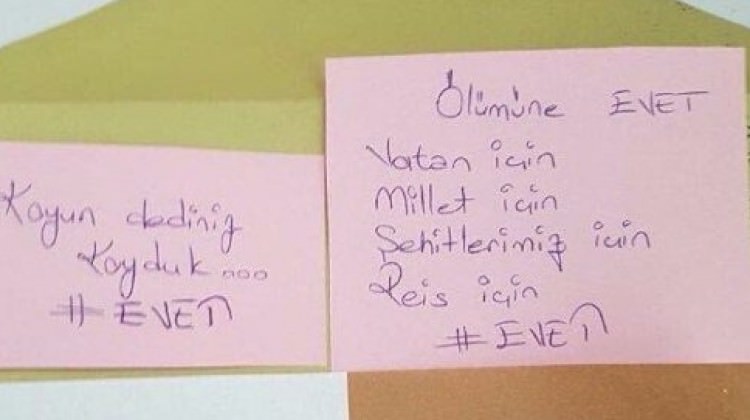 Koyun dediniz
Koyduk...
#EVET
Ölümüne EVET
Vatan için
Millet için
Şehitlerimiz için
Reis için
#EVET